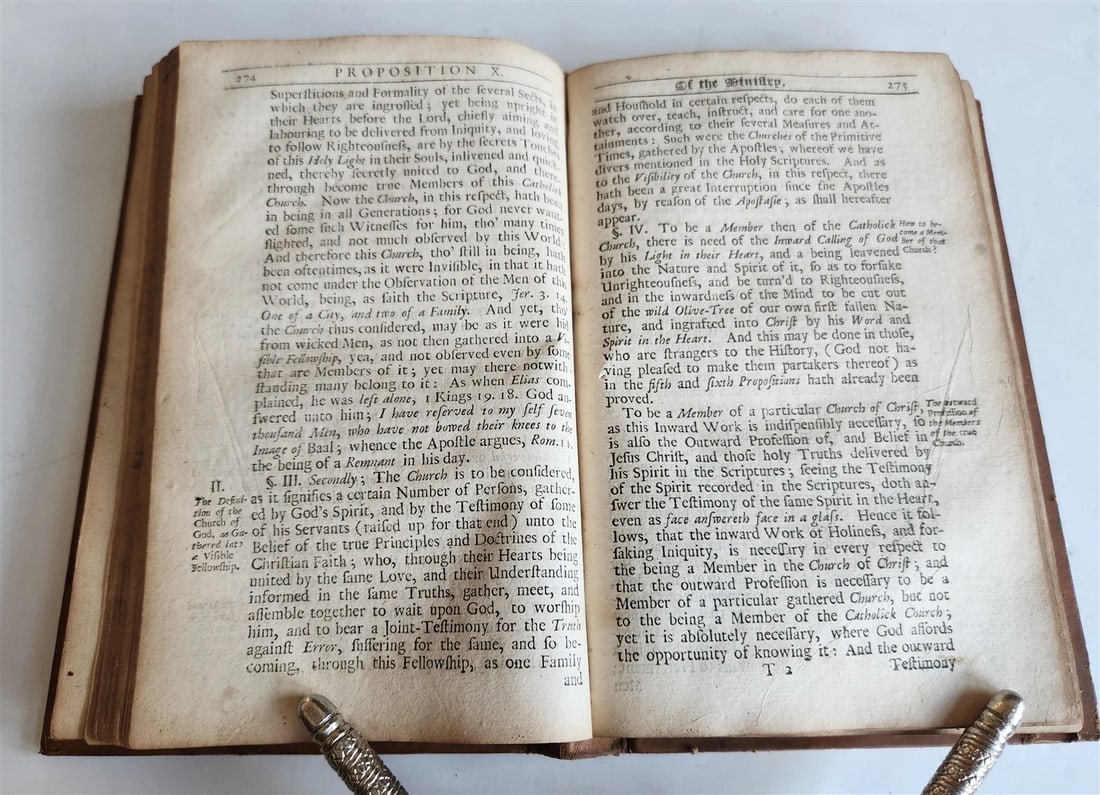 274 PROPOSITION X.
Superſtitions, and Formality of the ſeveral Sects, in
which they are ingroſſed; yet being upright in
their Hearts before the Lord, chiefly aiming and
labouring to be delivered from Iniquity, and loving
to follow Righteouſneſs, are by the ſecrets Touches
of this Holy Light in their Souls, inlivened and quick-
ned, thereby ſecretly united to God, and there-
through become true Members of this Catholick
Church. Now the Church, in this reſpect, hath been
in being in all Generations; for God never want-
ed ſome ſuch Witneſſes for him, tho' many times
ſlighted, and not much obſerved by this World.
And therefore this Church, tho' ſtill in being, hath
been oftentimes, as it were Inviſible, in that it hath
not come under the Obſervation of the Men of this
World, being, as ſaith the Scripture, Jer. 3. 14.
One of a City, and two of a Family. And yet, tho'
the Church thus conſidered, may be as it were hid
from wicked Men, as not then gathered into a Vi-
ſible Fellowſhip, yea, and not obſerved even by ſome
that are Members of it; yet may there notwith-
ſtanding many belong to it: As when Elias com-
plained, he was left alone, 1 Kings 19. 18. God an-
ſwered unto him; I have reſerved to my ſelf ſeven
thouſand Men, who have not bowed their knees to the
Image of Baal; whence the Apoſtle argues, Rom. 11.
the being of a Remnant in his day.
§. III. Secondly; The Church is to be conſidered,
as it ſignifies a certain Number of Perſons, gather-
ed by God's Spirit, and by the Teſtimony of ſome
of his Servants (raiſed up for that end) unto the
Belief of the true Principles and Doctrines of the
Chriſtian Faith; who, through their Hearts being
united by the ſame Love, and their Underſtanding
informed in the ſame Truths, gather, meet, and
aſſemble together to wait upon God, to worſhip
him, and to bear a Joint-Teſtimony for the Truth
againſt Error, ſuffering for the ſame, and ſo be-
coming, through this Fellowſhip, as one Family
and
II.
The Defini-
tion of the
Church of
God, as Ga-
thered into
a Viſible
Fellowſhip.
Of the Miniſtry. 275
and Houſhold in certain reſpects, do each of them
watch over, teach, inſtruct, and care for one ano-
ther, according to their ſeveral Meaſures and At-
tainments: Such were the Churches of the Primitive
Times, gathered by the Apoſtles; whereof we have
divers mentioned in the Holy Scriptures. And as
to the Viſibility of the Church, in this reſpect, there
hath been a great Interruption ſince the Apoſtles
days, by reaſon of the Apoſtaſie; as ſhall hereafter
appear.
§. IV. To be a Member then of the Catholick
Church, there is need of the Inward Calling of God
by his Light in their Heart, and a being leavened
into the Nature and Spirit of it, ſo as to forſake
Unrighteouſneſs, and be turn'd to Righteouſneſs,
and in the inwardneſs of the Mind to be cut out
of the wild Olive-Tree of our own firſt fallen Na-
ture, and ingrafted into Chriſt by his Word and
Spirit in the Heart. And this may be done in thoſe,
who are ſtrangers to the Hiſtory, (God not ha-
ving pleaſed to make them partakers thereof) as
in the fifth and ſixth Propoſitions hath already been
proved.
To be a Member of a particular Church of Chriſt,
as this Inward Work is indiſpenſibly neceſſary, ſo
is alſo the Outward Profeſſion of, and Belief in
Jeſus Chriſt, and thoſe holy Truths delivered by
his Spirit in the Scriptures; ſeeing the Teſtimony
of the Spirit recorded in the Scriptures, doth an-
ſwer the Teſtimony of the ſame Spirit in the Heart,
even as face anſwereth face in a glaſs. Hence it fol-
lows, that the inward Work of Holineſs, and for-
ſaking Iniquity, is neceſſary in every reſpect to
the being a Member in the Church of Chriſt; and
that the outward Profeſſion is neceſſary to be a
Member of a particular gathered Church, but not
to the being a Member of the Catholick Church;
yet it is abſolutely neceſſary, where God affords
the opportunity of knowing it: And the outward
T 2 Teſtimony
How to be-
come a Mem-
ber of that
Church?
The outward
Profeſſion of
the Members
of the true
Church.